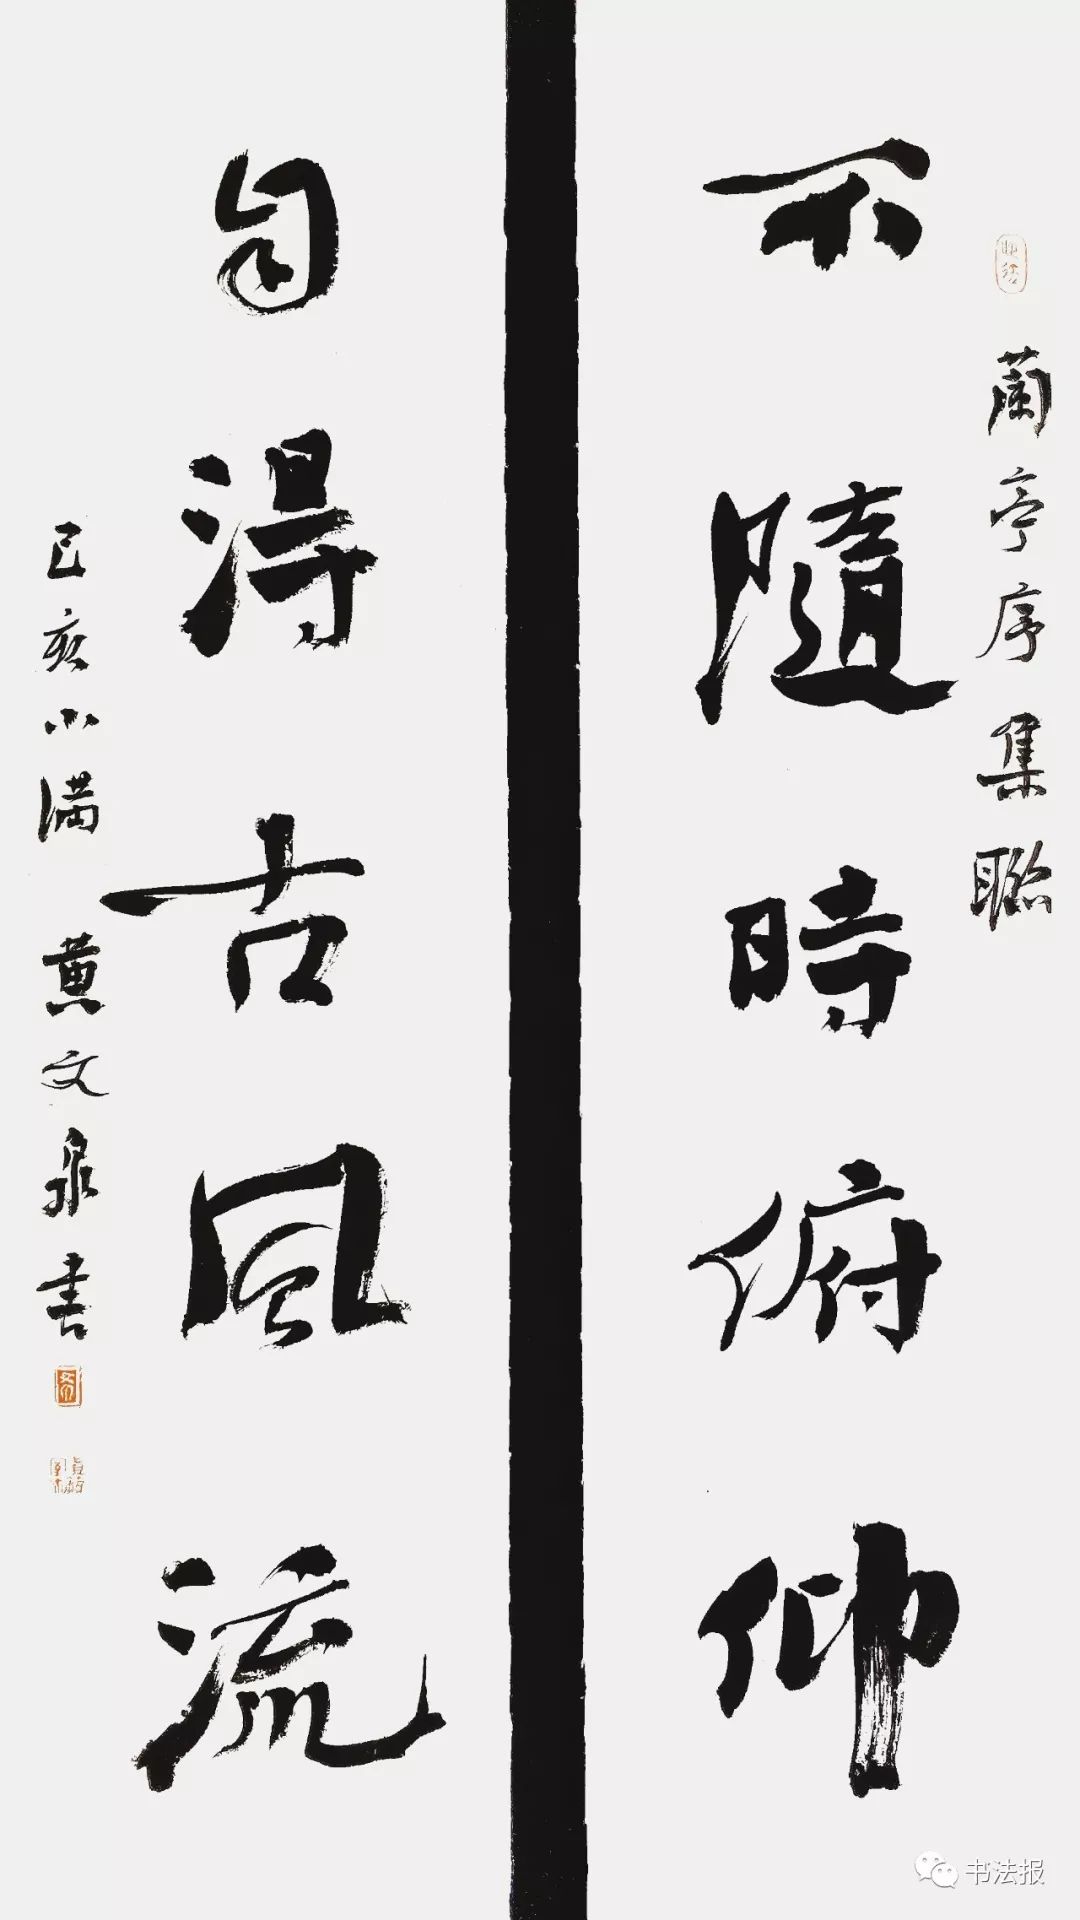 蘭亭序集聯
不隨時俯仰
自得古風流
己亥小满
黄文泉書
书法报